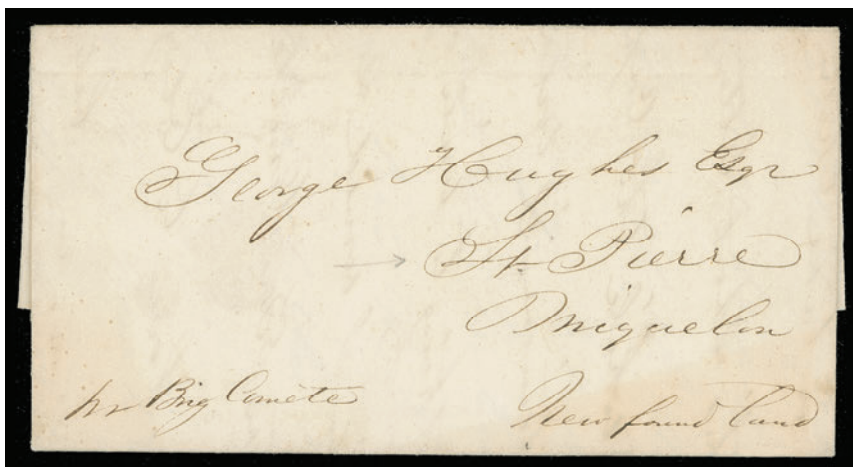 George Hughes Esqr
St Pierre
Miquelon
pr Brig Comète
New found land